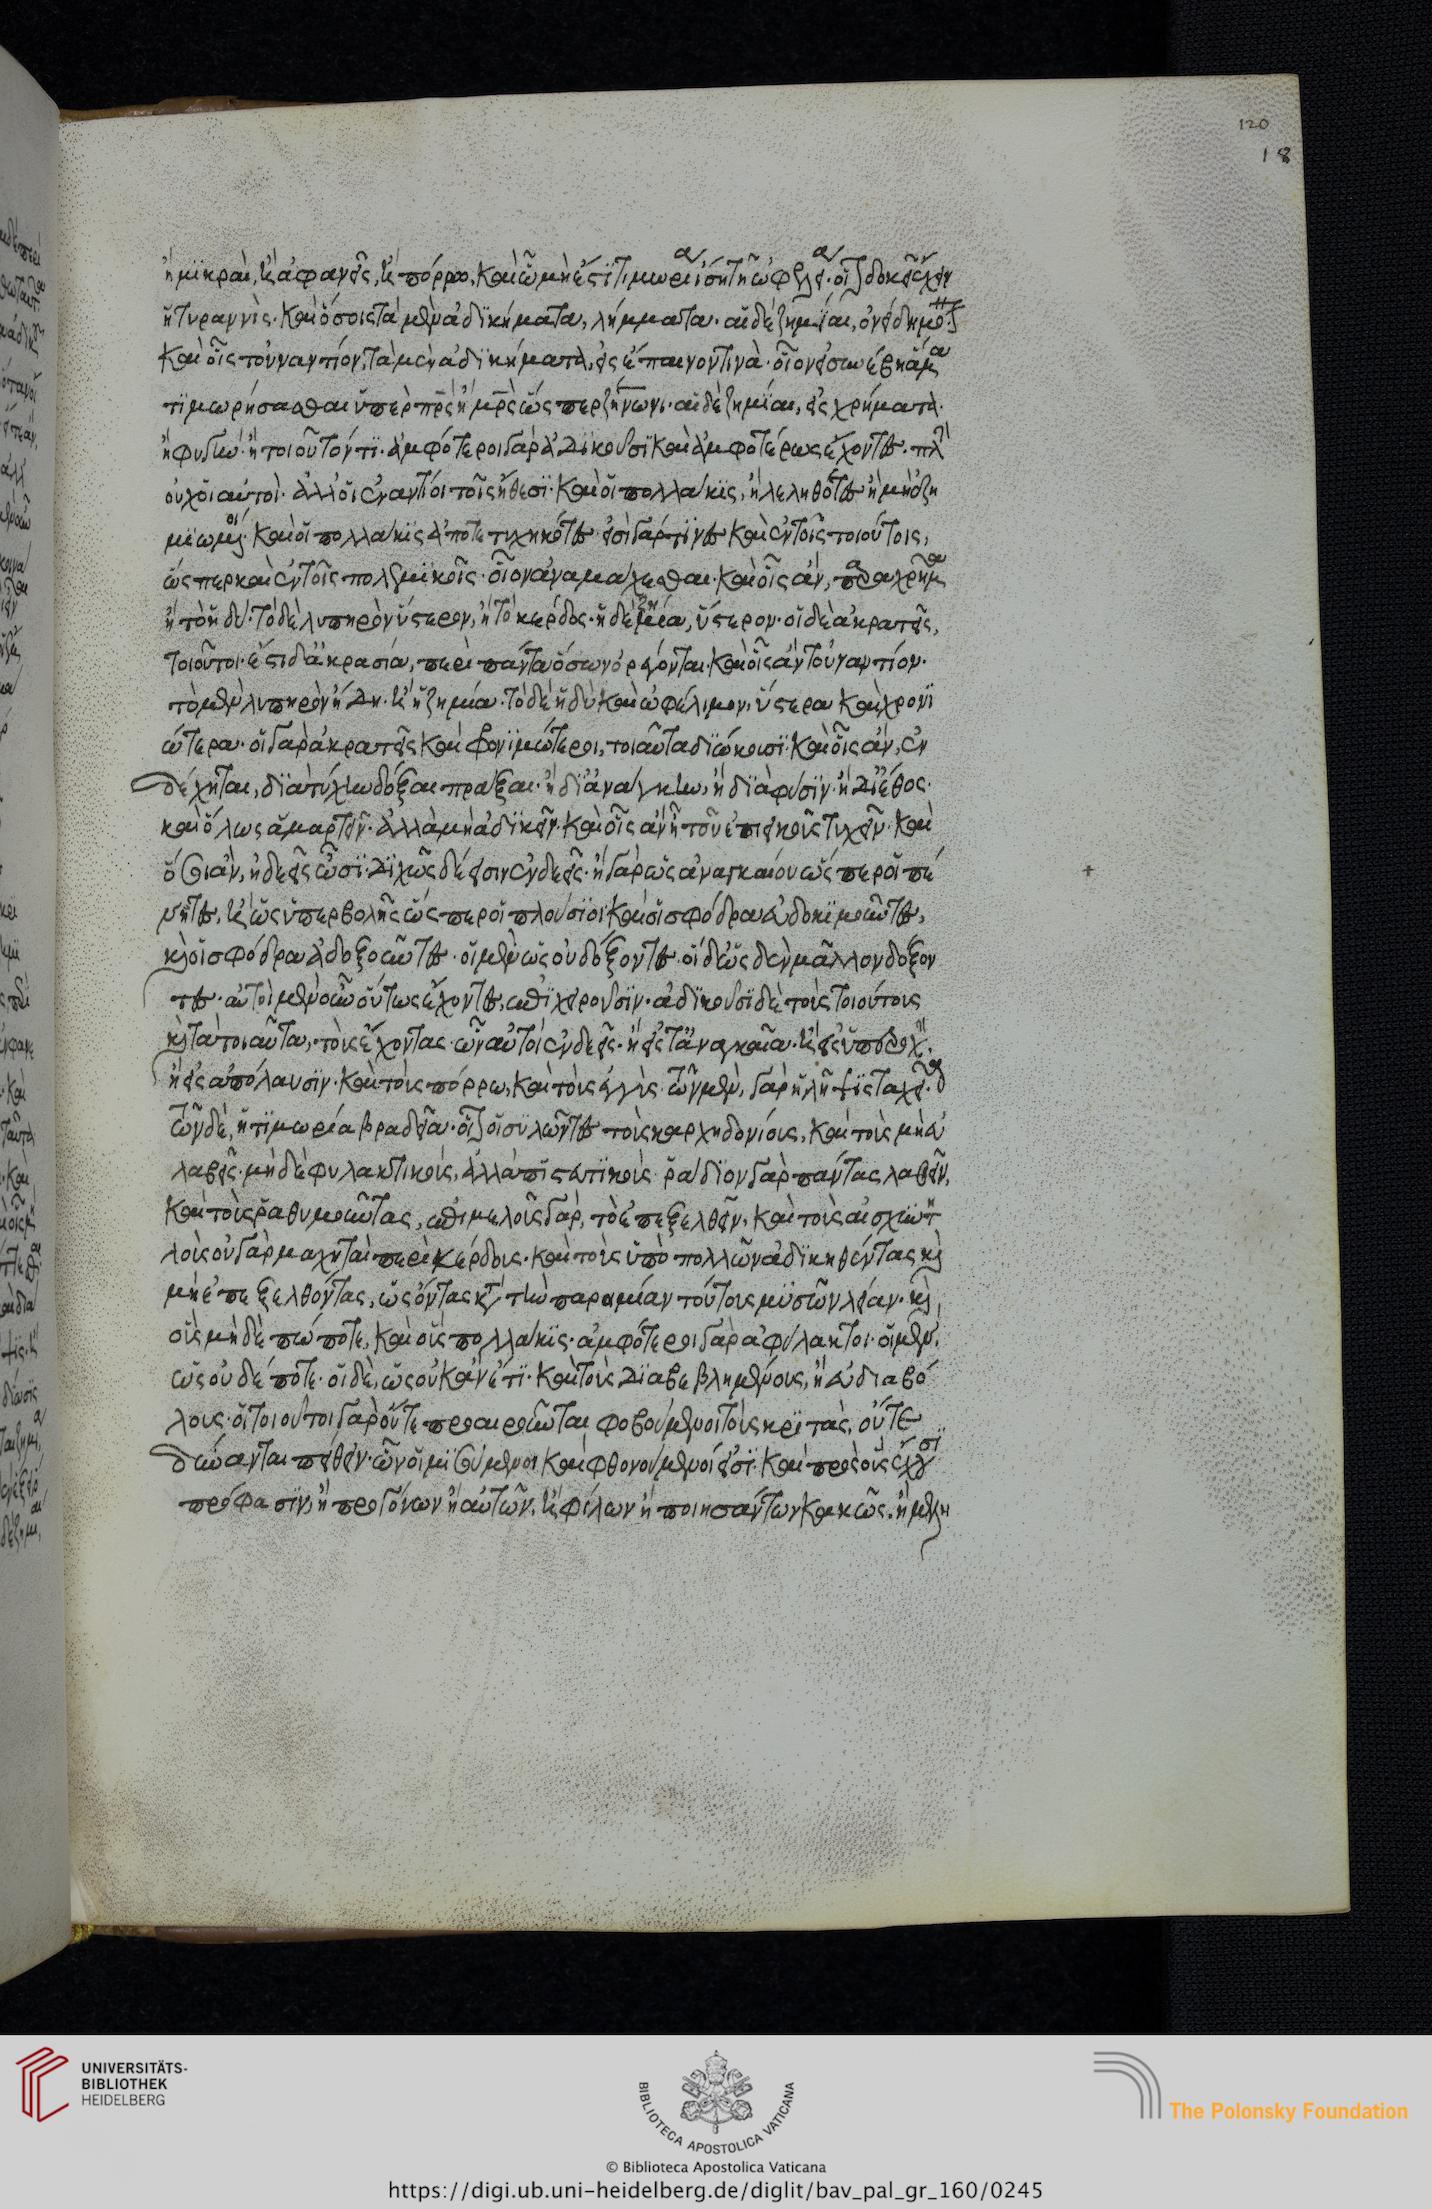 120
18
ἢ μικραὶ, ἢ ἀφανεῖς, ἢ πόρρω. καὶ ὧν μὴ ἔστι τιμωρία ἴση τῇ ὠφελεία. οἷον δοκεῖ
ἡ τυραννίς. καὶ ὅσοις τὰ μὲν ἀδικήματα, λήμματα. αἱ δὲ ζημίαι, ὀνείδη μόνον.
καὶ οἷς τοὐναντίον, τὰ μὲν ἀδικήματα, εἰς ἔπαινόν τινα. οἷον εἰ συνέβη ἅμα
τιμωρήσασθαι ὑπὲρ πρς ἢ μρς ὥσπερ ζήνωνι. αἱ δὲ ζημίαι, εἰς χρήματα.
ἢ φυγὴν. ἢ τοιοῦτόν τι. ἀμφότεροι γὰρ ἀδικοῦσι καὶ ἀμφοτέρως ἔχοντες. πλὴν
οὐχ οἱ αὐτοὶ. ἀλλ' οἱ ἐναντίοι τοῖς ἤθεσι. καὶ οἱ πολλάκις, ἢ λεληθότες ἢ μὴ ἐζη
μιωμένοι. καὶ οἱ πολλάκις ἀποτετυχηκότες. εἰσὶ γάρ τινες καὶ ἐν τοῖς τοιούτοις,
ὥσπερ καὶ ἐν τοῖς πολεμικοῖς. οἷον ἀναμάχεσθαι. καὶ οἷς ἂν, παραχρῆμα
ἢ τὸ ἡδύ. τὸ δὲ λυπηρὸν ὕστερον, ἢ τὸ κέρδος. ἡ δὲ ζημία, ὕστερον. οἱ δὲ ἀκρατεῖς,
τοιοῦτοι. ἔστι δ' ἀκρασία, περὶ πάντα ὅσων ὀρέγονται. καὶ οἷς ἂν τοὐναντίον.
τὸ μὲν λυπηρὸν ἤδη. ἢ ἡ ζημία. τὸ δὲ ἡδὺ καὶ ὠφέλιμον, ὕστερα καὶ χρονι
ώτερα. οἱ γὰρ ἐγκρατεῖς καὶ φρονιμώτεροι, τοιαῦτα διώκουσι. καὶ οἷς ἂν, ἐν
δέχηται, διὰ τύχην δόξαι πρᾶξαι. ἢ δι' ἀνάγκην, ἢ διὰ φύσιν. ἢ δι' ἔθος.
καὶ ὅλως ἁμαρτεῖν. ἀλλὰ μὴ ἀδικεῖν. καὶ οἷς ἂν ᾖ τοῦ ἐπιεικοῦς τυχεῖν. καὶ
ὅσοι ἂν, ἐνδεεῖς ὦσι. διχῶς δέ εἰσιν ἐνδεεῖς. ἢ γὰρ ὡς ἀναγκαίου ὥσπερ οἱ πέ
νητες, ἢ ὡς ὑπερβολῆς ὥσπερ οἱ πλούσιοι. καὶ οἱ σφόδρα εὐδοκιμοῦντες,
καὶ οἱ σφόδρα ἀδοξοῦντες. οἱ μὲν ὡς οὐ δόξοντες. οἱ δ' ὡς οὐδὲν μᾶλλον δόξον
τες. αὐτοὶ μὲν οὖν οὕτως ἔχοντες, ἐπιχειροῦσιν. ἀδικοῦσι δὲ τοὺς τοιούτους
καὶ τὰ τοιαῦτα. τοὺς ἔχοντας ὧν αὐτοὶ ἐνδεεῖς. ἢ εἰς τἀναγκαῖα. ἢ εἰς ὑπεροχὴν.
ἢ εἰς ἀπόλαυσιν. καὶ τοὺς πόρρω, καὶ τοὺς ἐγγύς. τῶν μὲν, γὰρ ἡ λῆψις ταχεῖα.
τῶν δὲ, ἡ τιμωρία βραδεῖα. οἷον οἱ συλῶντες τοὺς καρχηδονίους. καὶ τοὺς μὴ εὐ
λαβεῖς. μηδὲ φυλακτικοὺς, ἀλλὰ πιστευτικοὺς. ῥᾴδιον γὰρ πάντας λαθεῖν.
καὶ τοὺς ῥαθυμοῦντας, ἐπιμελοῦς γὰρ, τὸ ἐπεξελθεῖν. καὶ τοὺς αἰσχυντη
λοὺς οὐ γὰρ μαχηταὶ περὶ κέρδους. καὶ τοὺς ὑπὸ πολλῶν ἀδικηθέντας καὶ
μὴ ἐπεξελθόντας, ὡς ὄντας κατὰ τὴν παροιμίαν τούτους μυσῶν λείαν. καὶ
οὓς μηδὲ πώποτε, καὶ οὓς πολλάκις. ἀμφότεροι γὰρ ἀφύλακτοι. οἱ μὲν,
ὡς οὐδέποτε. οἱ δὲ, ὡς οὐκ ἂν ἔτι. καὶ τοὺς διαβεβλημένους, ἢ εὐδιαβό
λους. οἱ τοιοῦτοι γὰρ οὔτε προαιροῦνται φοβούμενοι τοὺς κριτάς, οὔτε
δύνανται πείθειν. ὧν οἱ μισούμενοι καὶ φθονούμενοί εἰσι. καὶ πρὸς οὓς ἔχουσι
πρόφασιν, ἢ προγόνων ἢ αὐτῶν. ἢ φίλων ἢ ποιησάντων κακῶς. ἢ μελλη
UNIVERSITÄTS-
BIBLIOTHEK
HEIDELBERG
BIBLIOTECA APOSTOLICA VATICANA
© Biblioteca Apostolica Vaticana
The Polonsky Foundation
https://digi.ub.uni-heidelberg.de/diglit/bav_pal_gr_160/0245